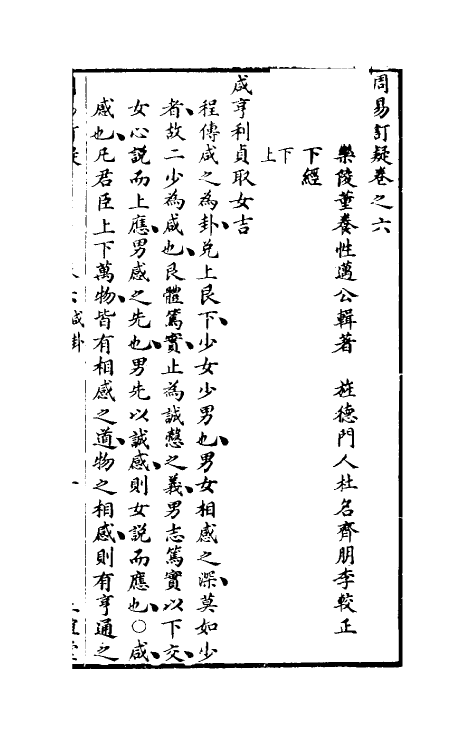 周易訂疑卷之六
樂陵董養性邁公輯著　旌德門人杜名齊朋李較正
下經
下
上
咸亨利貞取女吉
程傳咸之為卦兌上艮下少女少男也男女相感之深莫如少
者故二少為咸也艮體篤實止為誠慤之義男志篤實以下交
女心說而上應男感之先也男先以誠感則女說而應也○咸
感也凡君臣上下萬物皆有相感之道物之相感則有亨通之
咸卦